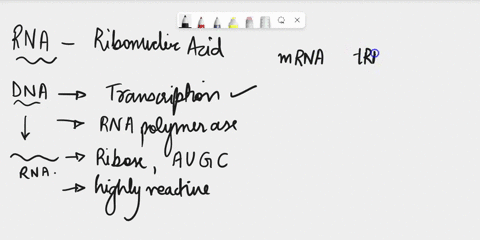 RNA – Ribonucleic Acid
mRNA tRN
DNA → Transcription ✓
→ RNA polymerase
RNA. → Ribose, AUGC
→ highly reactive